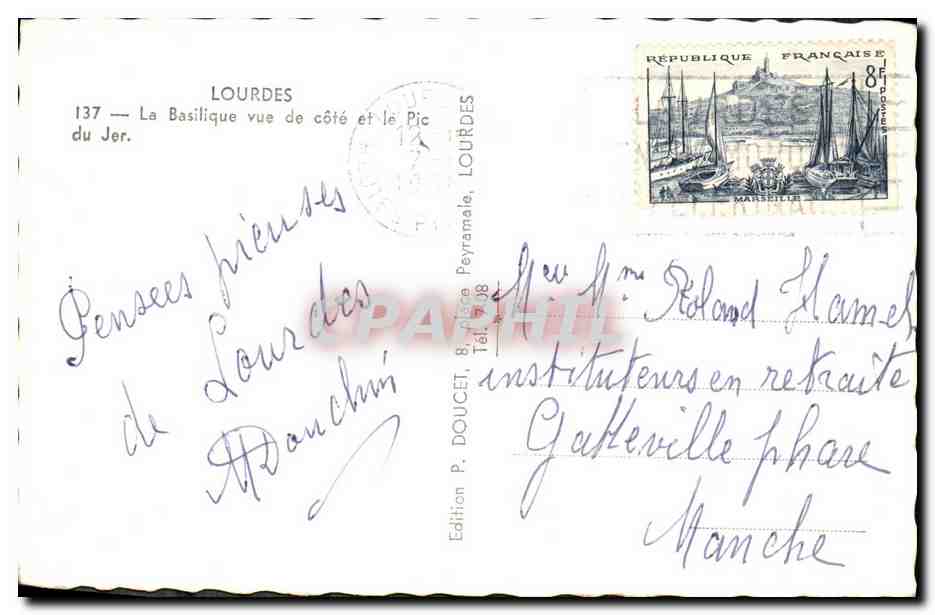 LOURDES
137 — La Basilique vue de côté et le Pic
du Jer.
Pensées pieuses
de Lourdes
Edition P. DOUCET, 8, Place Peyramale, LOURDES
RÉPUBLIQUE FRANÇAISE
8F
POSTES
MARSEILLE
Mr et Mme Roland Hamel
instituteurs en retraite
Gatteville phare
Manche
CPAPHIL